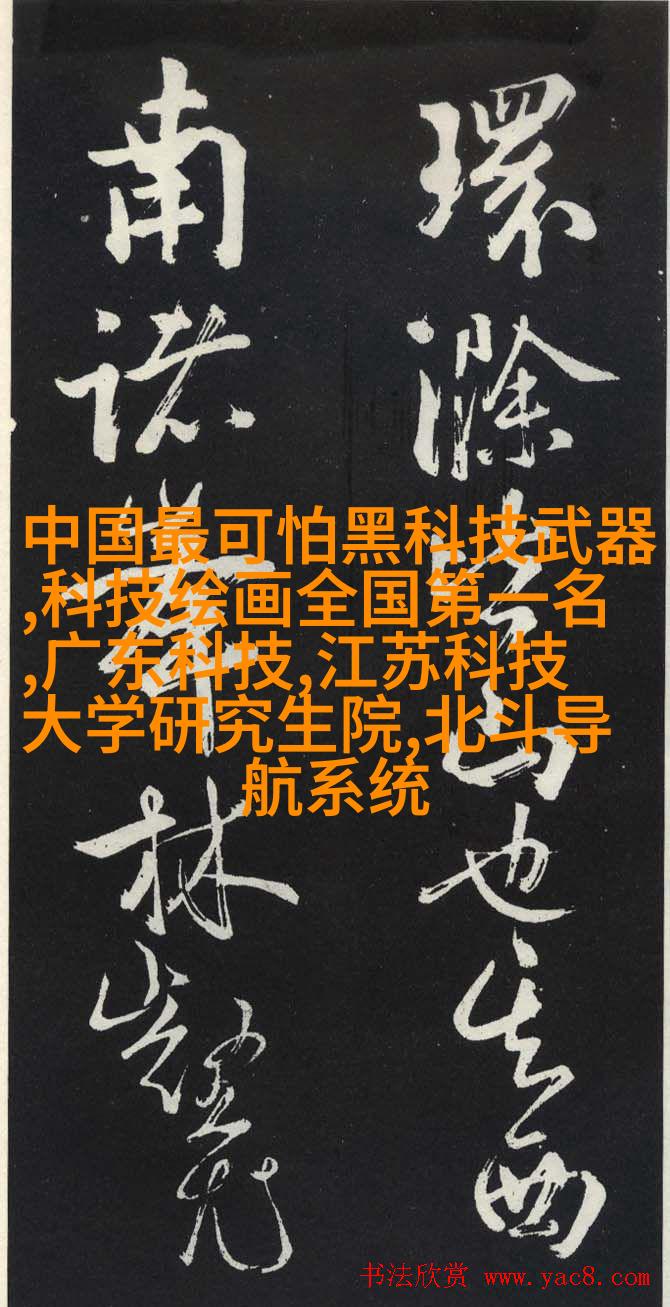 環滁皆山也其西
南諸峯林壑尤
中国最可怕黑科技武器
,科技绘画全国第一名
,广东科技,江苏科技
大学研究生院,北斗导
航系统
书法欣赏 www.yac8.com